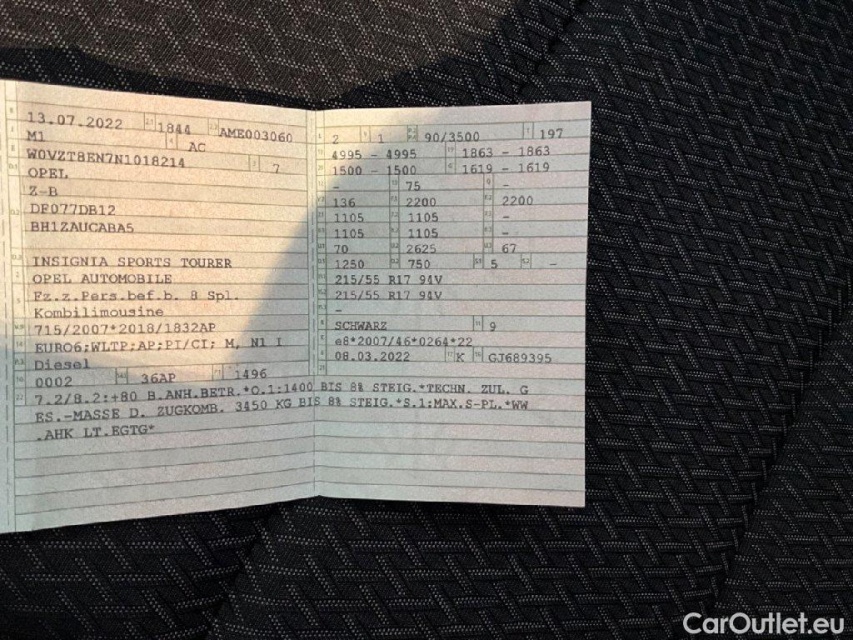 13.07.2022 1844 AME003060
M1 AC
W0VZT8EN7N1018214 7
OPEL
Z-B
DF077DB12
BH1ZAUCABA5
INSIGNIA SPORTS TOURER
OPEL AUTOMOBILE
Fz.z.Pers.bef.b. 8 Spl.
Kombilimousine
715/2007*2018/1832AP
EURO6;WLTP;AP;PI/CI; M, N1 I
Diesel
0002 36AP 1496
2 1 90/3500 197
4995 - 4995 1863 - 1863
1500 - 1500 1619 - 1619
- 75 -
136 2200 2200
1105 1105 -
1105 1105 -
70 2625 67
1250 750 5 -
215/55 R17 94V
215/55 R17 94V
-
SCHWARZ 9
e8*2007/46*0264*22
08.03.2022 K GJ689395
7.2/8.2:+80 B.ANH.BETR.*O.1:1400 BIS 8% STEIG.*TECHN. ZUL. G
ES.-MASSE D. ZUGKOMB. 3450 KG BIS 8% STEIG.*S.1;MAX.S-PL.*WW
.AHK LT.EGTG*
CarOutlet.eu